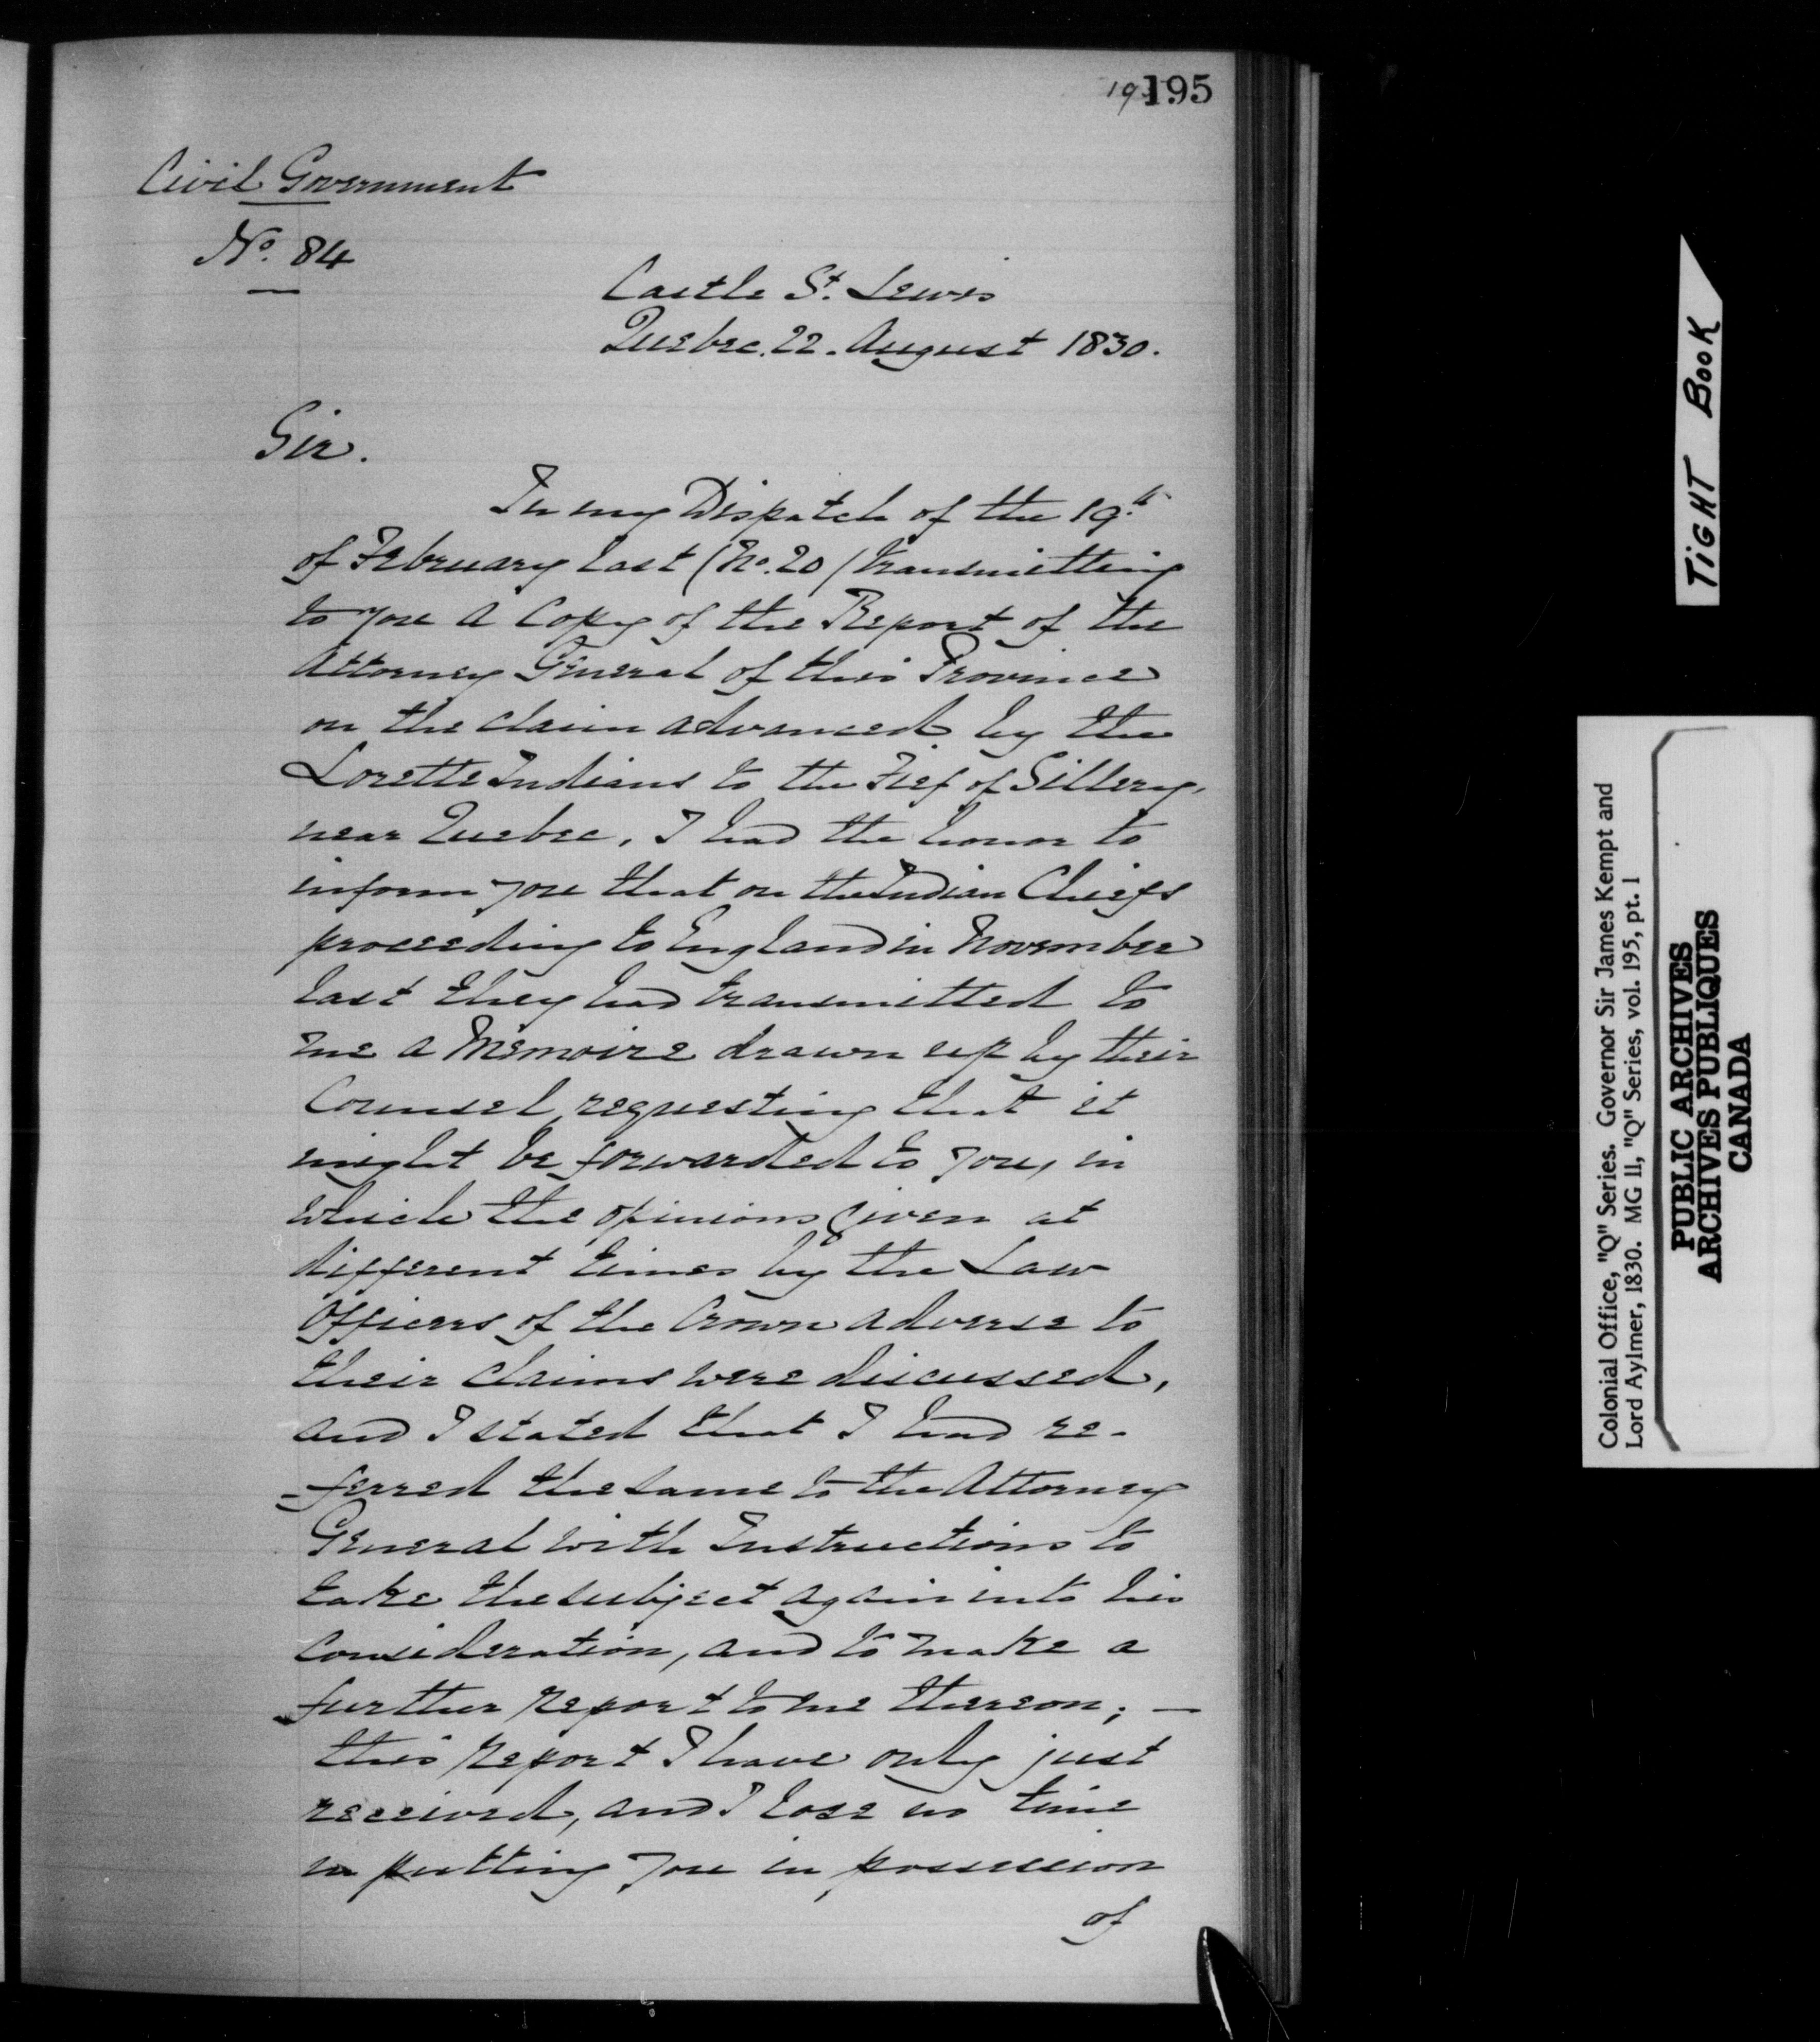 195
195
Civil Government
No. 84
Castle St. Lewis
Quebec. 22. August 1830.
Sir.
In my Dispatch of the 19th
of February last (No. 20) transmitting
to you a Copy of the Report of the
Attorney General of this Province
on the claim advanced by the
Lorette Indians to the Fief of Sillery,
near Quebec, I had the honor to
inform you that on the Indian Chiefs
proceeding to England in November
last they had transmitted to
me a Memoire drawn up by their
Counsel, requesting that it
might be forwarded to you, in
which the opinions given at
different times by the Law
Officers of the Crown adverse to
their claims were discussed,
and I stated that I had re-
-ferred the same to the Attorney
General with Instructions to
take the subject again into his
Consideration, and to make a
further Report to me thereon; —
this Report I have only just
received, and I lose no time
in putting you in possession
of
TIGHT BOOK
Colonial Office, "Q" Series. Governor Sir James Kempt and
Lord Aylmer, 1830. MG 11, "Q" Series, vol. 195, pt. 1
PUBLIC ARCHIVES
ARCHIVES PUBLIQUES
CANADA